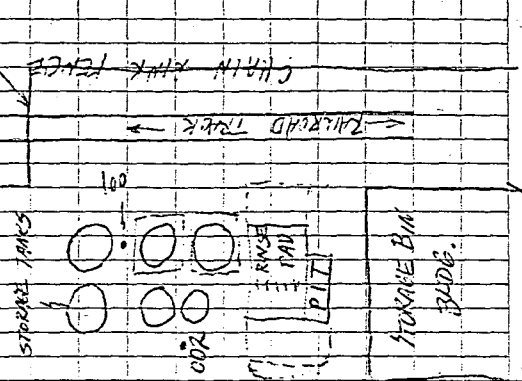 CHAIN LINK FENCE
RAILROAD TRACK
STORAGE TANKS
001
002
RINSE
PAD
PIT
STORAGE BIN
BLDG.